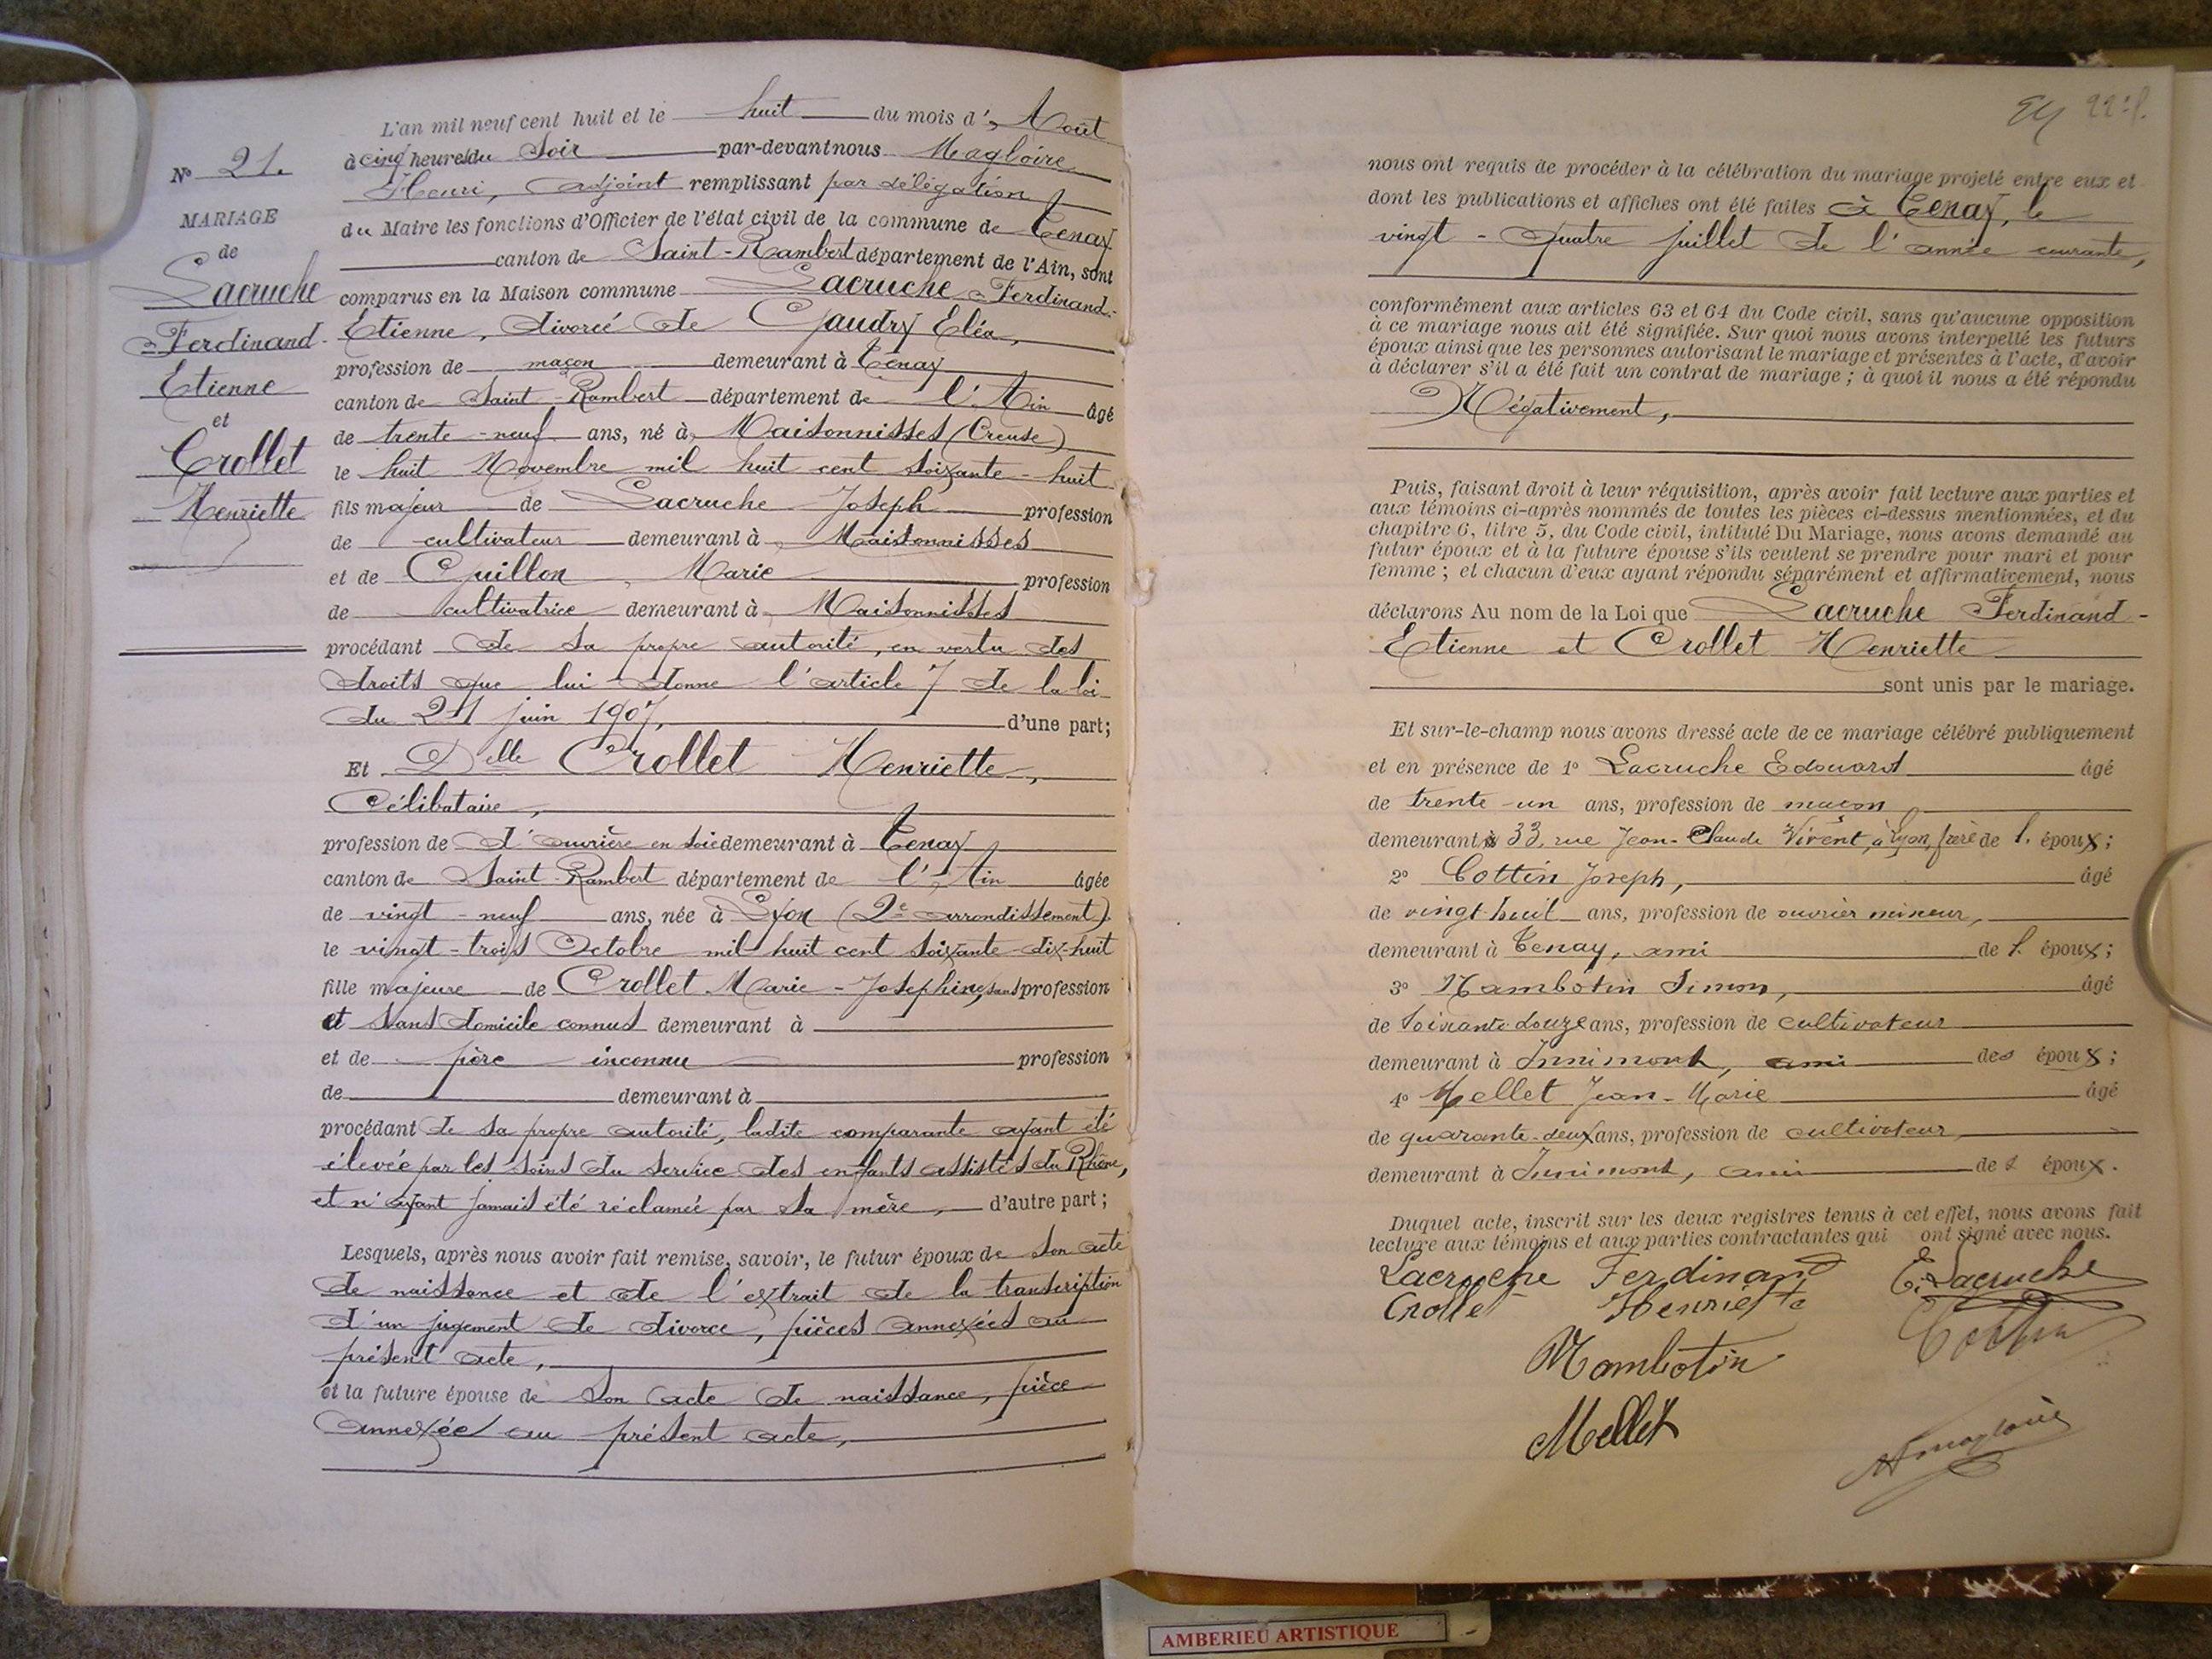 L'an mil neuf cent huit et le huit du mois d'Août
à cinq heures du Soir par-devant nous Magloire
Henri, adjoint remplissant par délégation
du Maire les fonctions d'Officier de l'état civil de la commune de Tenay
canton de Saint-Rambert département de l'Ain, sont
comparus en la Maison commune Lacruche Ferdinand-
Etienne, divorcé de Gaudry Eléa,
profession de maçon demeurant à Tenay
canton de Saint-Rambert département de l'Ain âgé
de trente-neuf ans, né à Maisonnisses (Creuse)
le huit Novembre mil huit cent soixante-huit
fils majeur de Lacruche Joseph profession
de cultivateur demeurant à Maisonnisses
et de Guillon, Marie profession
de cultivatrice demeurant à Maisonnisses
procédant de sa propre autorité, en vertu des
droits que lui donne l'article 7 de la loi
du 21 juin 1907, d'une part;
Et Delle Crollet Henriette,
Célibataire,
profession de d'ouvrière en soie demeurant à Tenay
canton de Saint-Rambert département de l'Ain âgée
de vingt-neuf ans, née à Lyon (2e arrondissement)
le vingt-trois Octobre mil huit cent soixante-dix-huit
fille majeure de Crollet Marie-Josephine, sans profession
et sans domicile connus demeurant à
et de père inconnu profession
de demeurant à
procédant de sa propre autorité, ladite comparante ayant été
élevée par les soins du service des enfants assistés du Rhône,
et n'ayant jamais été réclamée par sa mère, d'autre part;
Lesquels, après nous avoir fait remise, savoir, le futur époux de son acte
de naissance et de l'extrait de la transcription
d'un jugement de divorce, pièces annexées au
présent acte,
et la future épouse de son acte de naissance, pièce
annexée au présent acte,
No 21.
MARIAGE
de
Lacruche
Ferdinand-
Etienne
et
Crollet
Henriette
22e f.
nous ont requis de procéder à la célébration du mariage projeté entre eux et
dont les publications et affiches ont été faites à Tenay, le
vingt-quatre juillet de l'année courante,
conformément aux articles 63 et 64 du Code civil, sans qu'aucune opposition
à ce mariage nous ait été signifiée. Sur quoi nous avons interpellé les futurs
époux ainsi que les personnes autorisant le mariage et présentes à l'acte, d'avoir
à déclarer s'il a été fait un contrat de mariage; à quoi il nous a été répondu
Négativement,
Puis, faisant droit à leur réquisition, après avoir fait lecture aux parties et
aux témoins ci-après nommés de toutes les pièces ci-dessus mentionnées, et du
chapitre 6, titre 5, du Code civil, intitulé Du Mariage, nous avons demandé au
futur époux et à la future épouse s'ils veulent se prendre pour mari et pour
femme; et chacun d'eux ayant répondu séparément et affirmativement, nous
déclarons Au nom de la Loi que Lacruche Ferdinand-
Etienne et Crollet Henriette
sont unis par le mariage.
Et sur-le-champ nous avons dressé acte de ce mariage célébré publiquement
et en présence de 1o Lacruche Edouard âgé
de trente-un ans, profession de maçon
demeurant à 33, rue Jean-Claude Vivent, à Lyon, frère de l. époux;
2o Cottin Joseph, âgé
de vingt-huit ans, profession de ouvrier mineur,
demeurant à Tenay, ami de l. époux;
3o Mambotin Simon, âgé
de soixante-douze ans, profession de cultivateur
demeurant à Innimont, ami des époux;
4o Mellet Jean-Marie âgé
de quarante-deux ans, profession de cultivateur
demeurant à Innimont, ami des époux.
Duquel acte, inscrit sur les deux registres tenus à cet effet, nous avons fait
lecture aux témoins et aux parties contractantes qui ont signé avec nous.
Lacruche Ferdinand E. Lacruche
Crollet Henriette Cottin
Mambotin
Mellet
H Magloire
AMBERIEU ARTISTIQUE